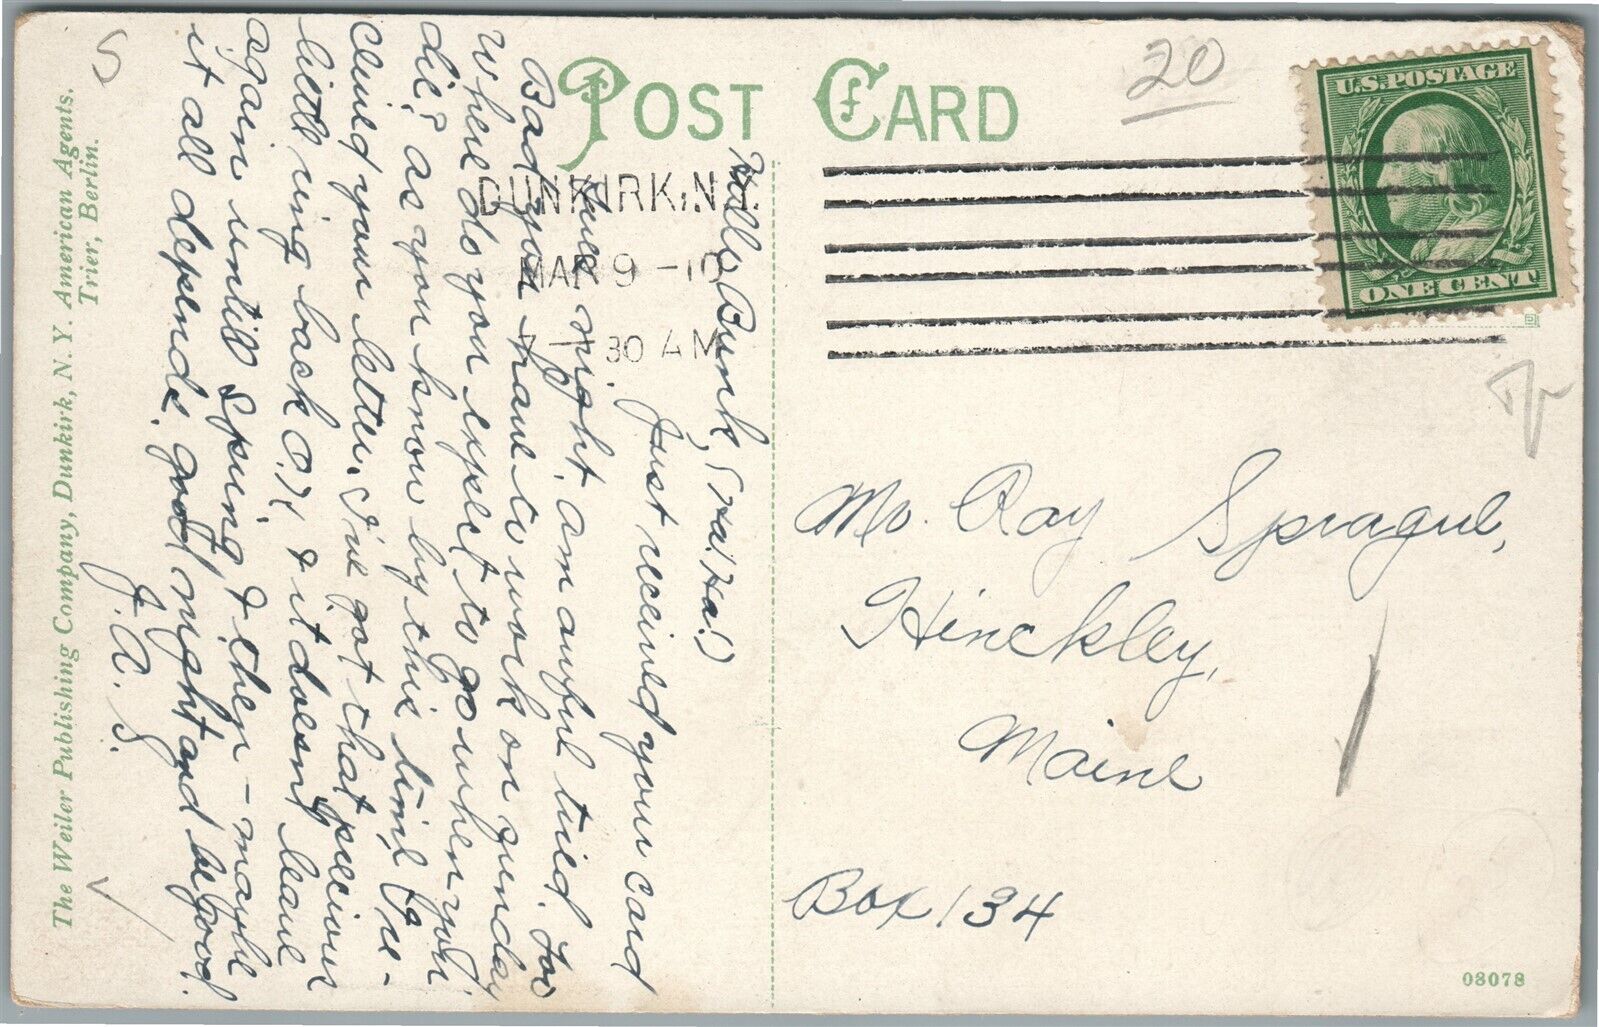 POST CARD
20
U.S. POSTAGE
ONE CENT
DUNKIRK, N.Y.
MAR 9 - 10
7 - 30 AM
Hello Bunk, (Ha! Ha!)
Just received your card
right. Am awful tired. Too
Bad you have to work on sunday
Where do you expect to go when you
die? as you know by this time I re-
ceived your letter. I've got that precious
little ring back O.K. & it doesnt leave
again untill Spring & then - maybe
it all depends. good night and be good.
J. A. S.
Mr. Ray Sprague,
Hinckley,
Maine
Box 134
The Weiler Publishing Company, Dunkirk, N. Y. American Agents.
Trier, Berlin.
S
08078